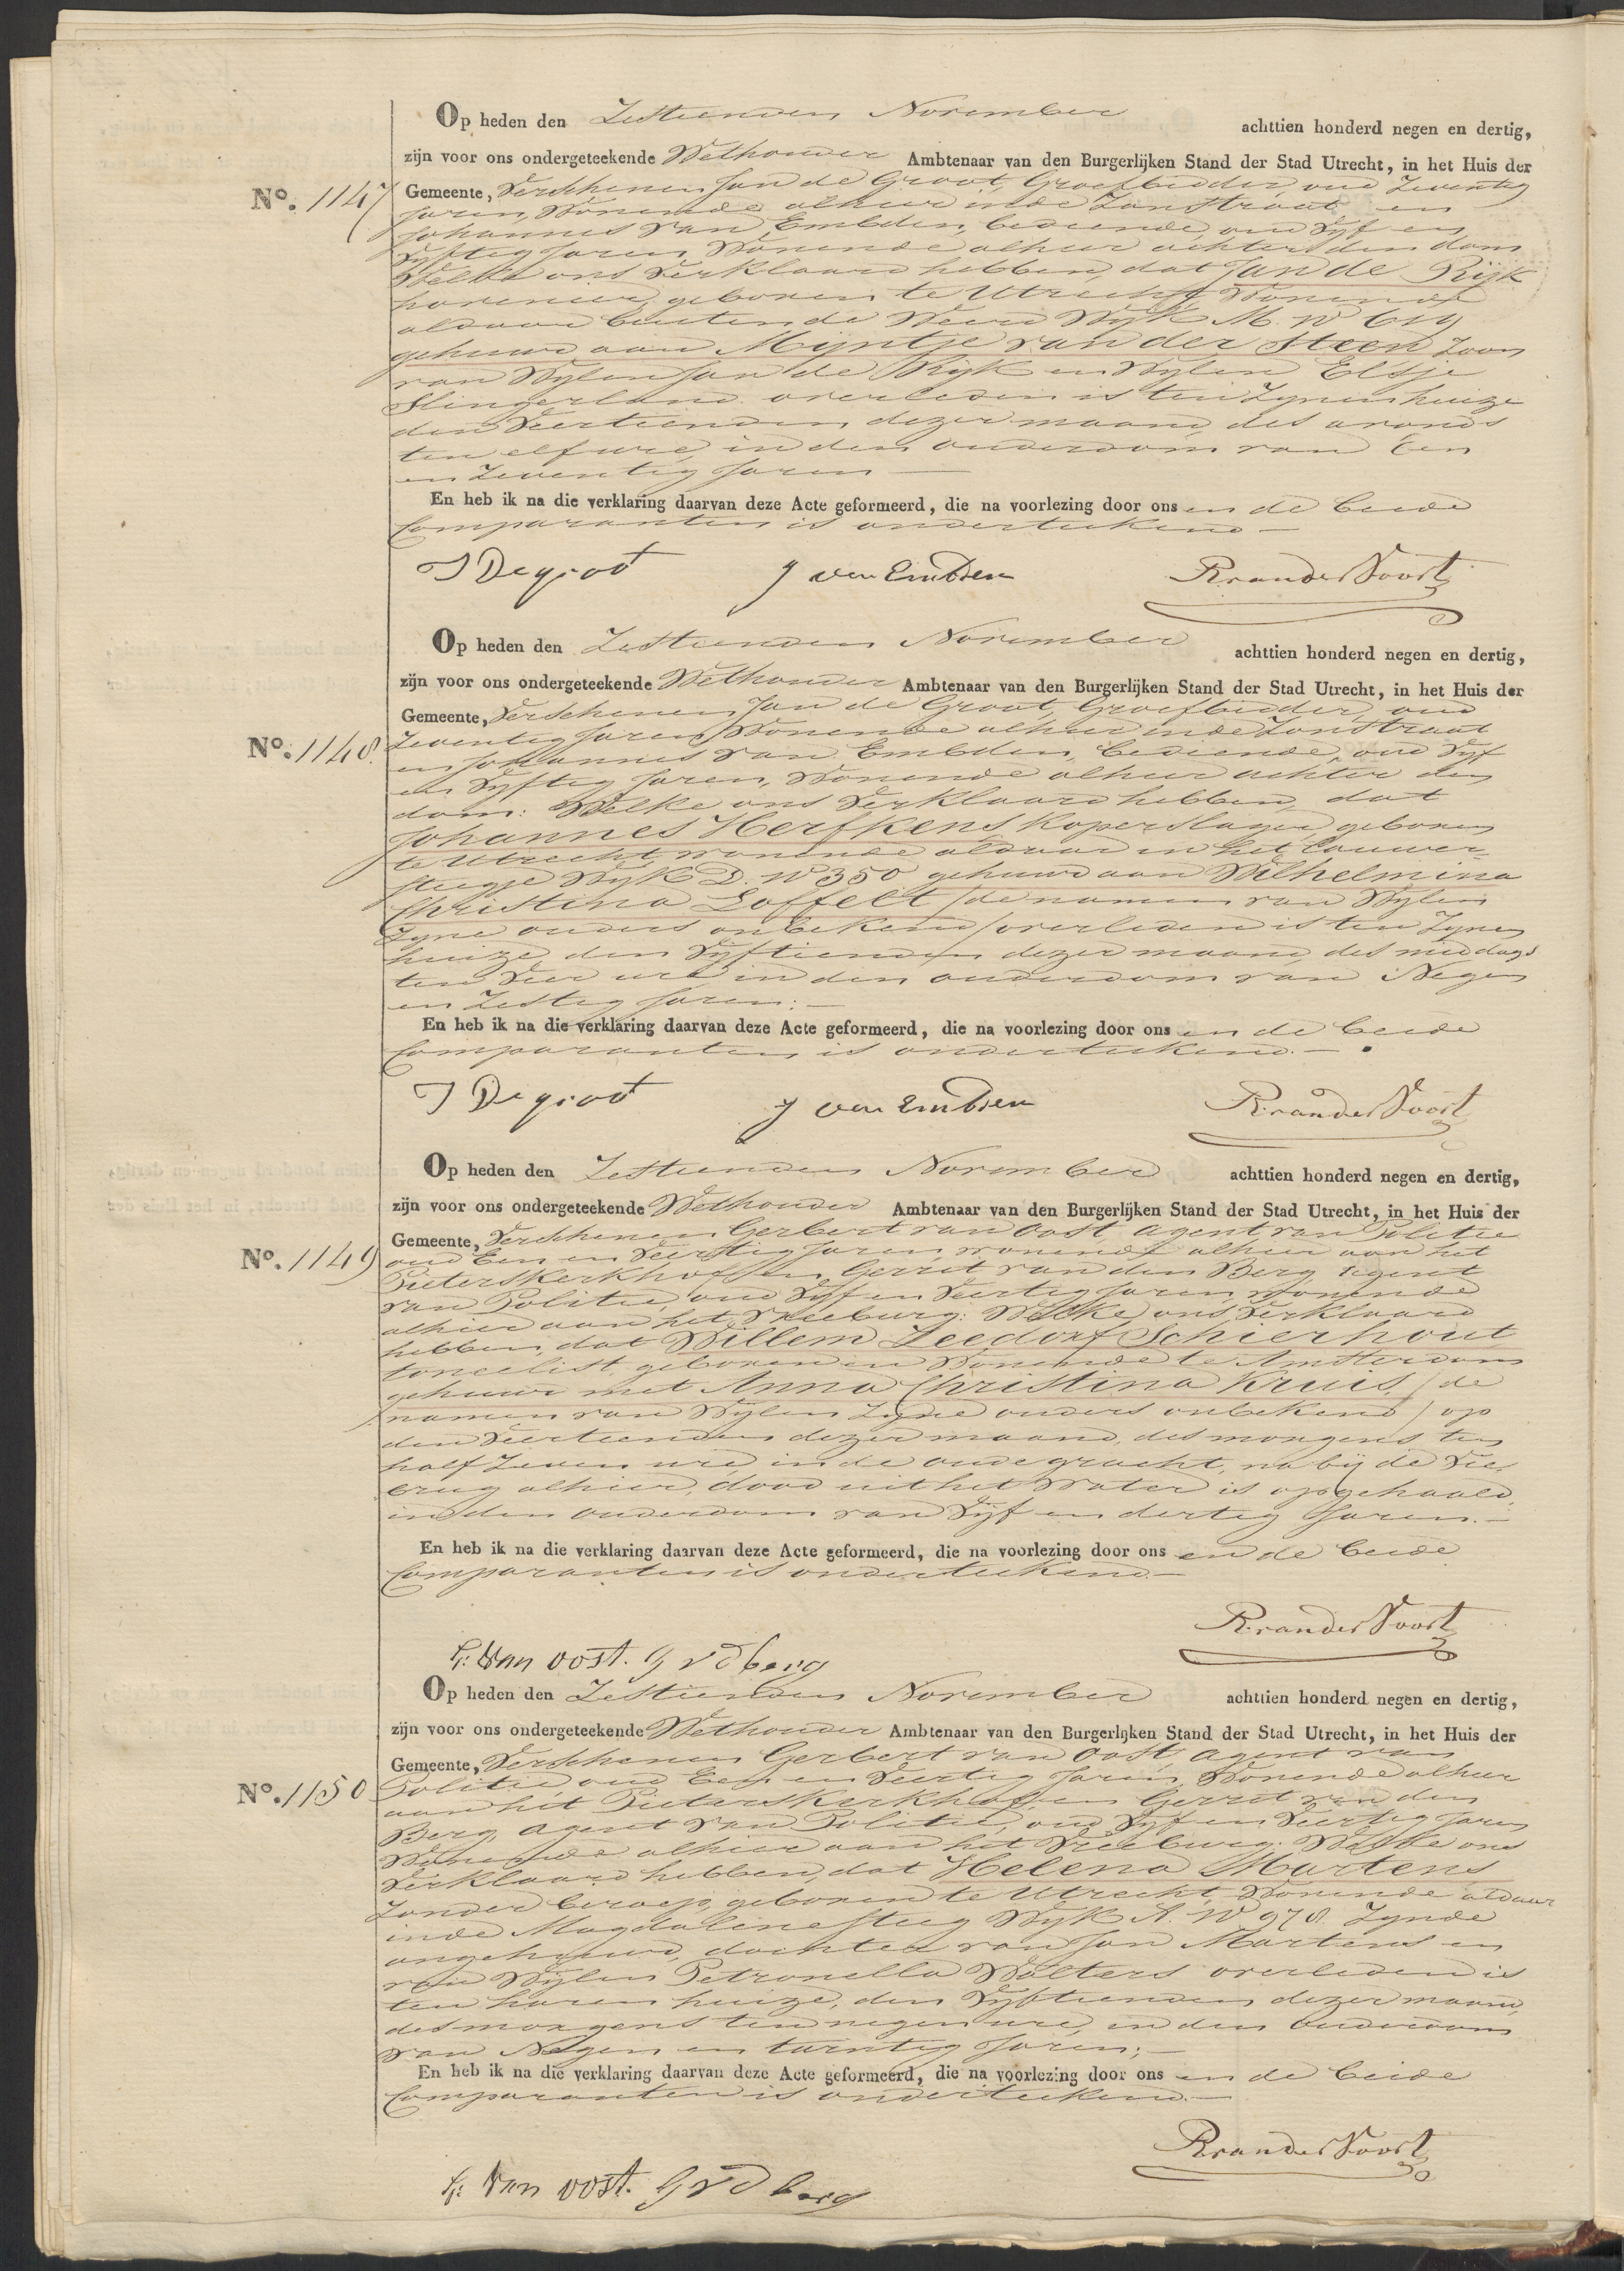 Op heden den Zestienden November achttien honderd negen en dertig,
zijn voor ons ondergeteekende Wethouder Ambtenaar van den Burgerlijken Stand der Stad Utrecht, in het Huis der
No. 1147 Gemeente, Verschenen Jan de Groot, Groefbidder, oud Zeventig
Jaren, Wonende alhier in de Zandstraat en
Johannes van Embden, bediende, oud Vyf en
Vyftig Jaren Wonende alhier achter den dom
Welke ons Verklaard hebben, dat Jan de Rijk
hovenier, geboren te Utrecht, Wonende
aldaar buiten de Weerd Wyk M. No 619
gehuwd aan Mijntje van der Steen Zoon
van Wylen Jan de Rijk en Wylen Elsje
Slingerland overleden is ten Zynen huize
den Veertienden dezer maand, des avonds
ten elf ure, in den ouderdom van Een
en Zeventig Jaren
En heb ik na die verklaring daarvan deze Acte geformeerd, die na voorlezing door ons en de beide
Comparanten is onderteekend
J De groot J van Embden R van der Voort
Op heden den Zestienden November achttien honderd negen en dertig,
zijn voor ons ondergeteekende Wethouder Ambtenaar van den Burgerlijken Stand der Stad Utrecht, in het Huis der
Gemeente, Verschenen Jan de Groot, Groefbidder, oud
No. 1148. Zeventig Jaren, Wonende alhier in de Zandstraat
en Johannes van Embden, bediende, oud Vyf
en Vyftig Jaren, Wonende alhier achter den
dom: Welke ons Verklaard hebben, dat
Johannes Herfkens Koperslager, geboren
te Utrecht, wonende aldaar in het
steegje Wyk D. No 350 gehuwd aan Wilhelmina
Christina Loffelt / de namen van Wylen
Zyne ouders onbekend / overleden is ten Zynen
huize, den Vyftienden dezer maand des middags
ten Vier ure, in den ouderdom van Negen
en Zestig Jaren:
En heb ik na die verklaring daarvan deze Acte geformeerd, die na voorlezing door ons en de beide
Comparanten is onderteekend.
J De groot J van Embden R van der Voort
Op heden den Zestienden November achttien honderd negen en dertig,
zijn voor ons ondergeteekende Wethouder Ambtenaar van den Burgerlijken Stand der Stad Utrecht, in het Huis der
Gemeente, Verschenen Gerbert van Oost, Agent van Politie
No. 1149 oud Een en Veertig Jaren wonende alhier aan het
Pieterskerkhof en Gerrit van den Berg, Agent
van Politie, oud Vyf en Veertig Jaren, wonende
alhier aan het Vreeburg: Welke ons Verklaard
hebben, dat Willem Zeedorf Schierhout
toneelist, geboren en Wonende te Amsterdam
gehuwd met Anna Christina Kruis, / de
namen van Wylen Zyne ouders onbekend / op
den Veertienden dezer maand, des morgens ten
half Zeven ure, in de oude gracht, na bij de Vie
brug alhier, dood uit het Water is opgehaald,
in den ouderdom van Vyf en dertig Jaren.
En heb ik na die verklaring daarvan deze Acte geformeerd, die na voorlezing door ons en de beide
Comparanten is onderteekend.
R van der Voort
G: Van oost. G v d berg
Op heden den Zestienden November achttien honderd negen en dertig,
zijn voor ons ondergeteekende Wethouder Ambtenaar van den Burgerlijken Stand der Stad Utrecht, in het Huis der
Gemeente, Verschenen Gerbert van Oost, Agent van
No. 1150 Politie, oud Een en Veertig Jaren, Wonende alhier
aan het Pieterskerkhof, en Gerrit van den
Berg, Agent van Politie, oud Vyf en Veertig Jaren
Wonende alhier aan het Vreeburg. Welke ons
Verklaard hebben, dat Helena Martens
Zonder beroep, geboren te Utrecht, Wonende aldaar
in de Magdalinesteeg Wyk A. No 978. Zynde
ongehuwd, dochter van Jan Martens en
van Wylen Petronella Wolters overleden is
ten haren huize, den Vyftienden dezer maand,
des morgens ten negen ure, in den Ouderdom
van Negen en twintig Jaren;
En heb ik na die verklaring daarvan deze Acte geformeerd, die na voorlezing door ons en de beide
Comparanten is onderteekend.
R van der Voort
G: Van oost. G v d berg